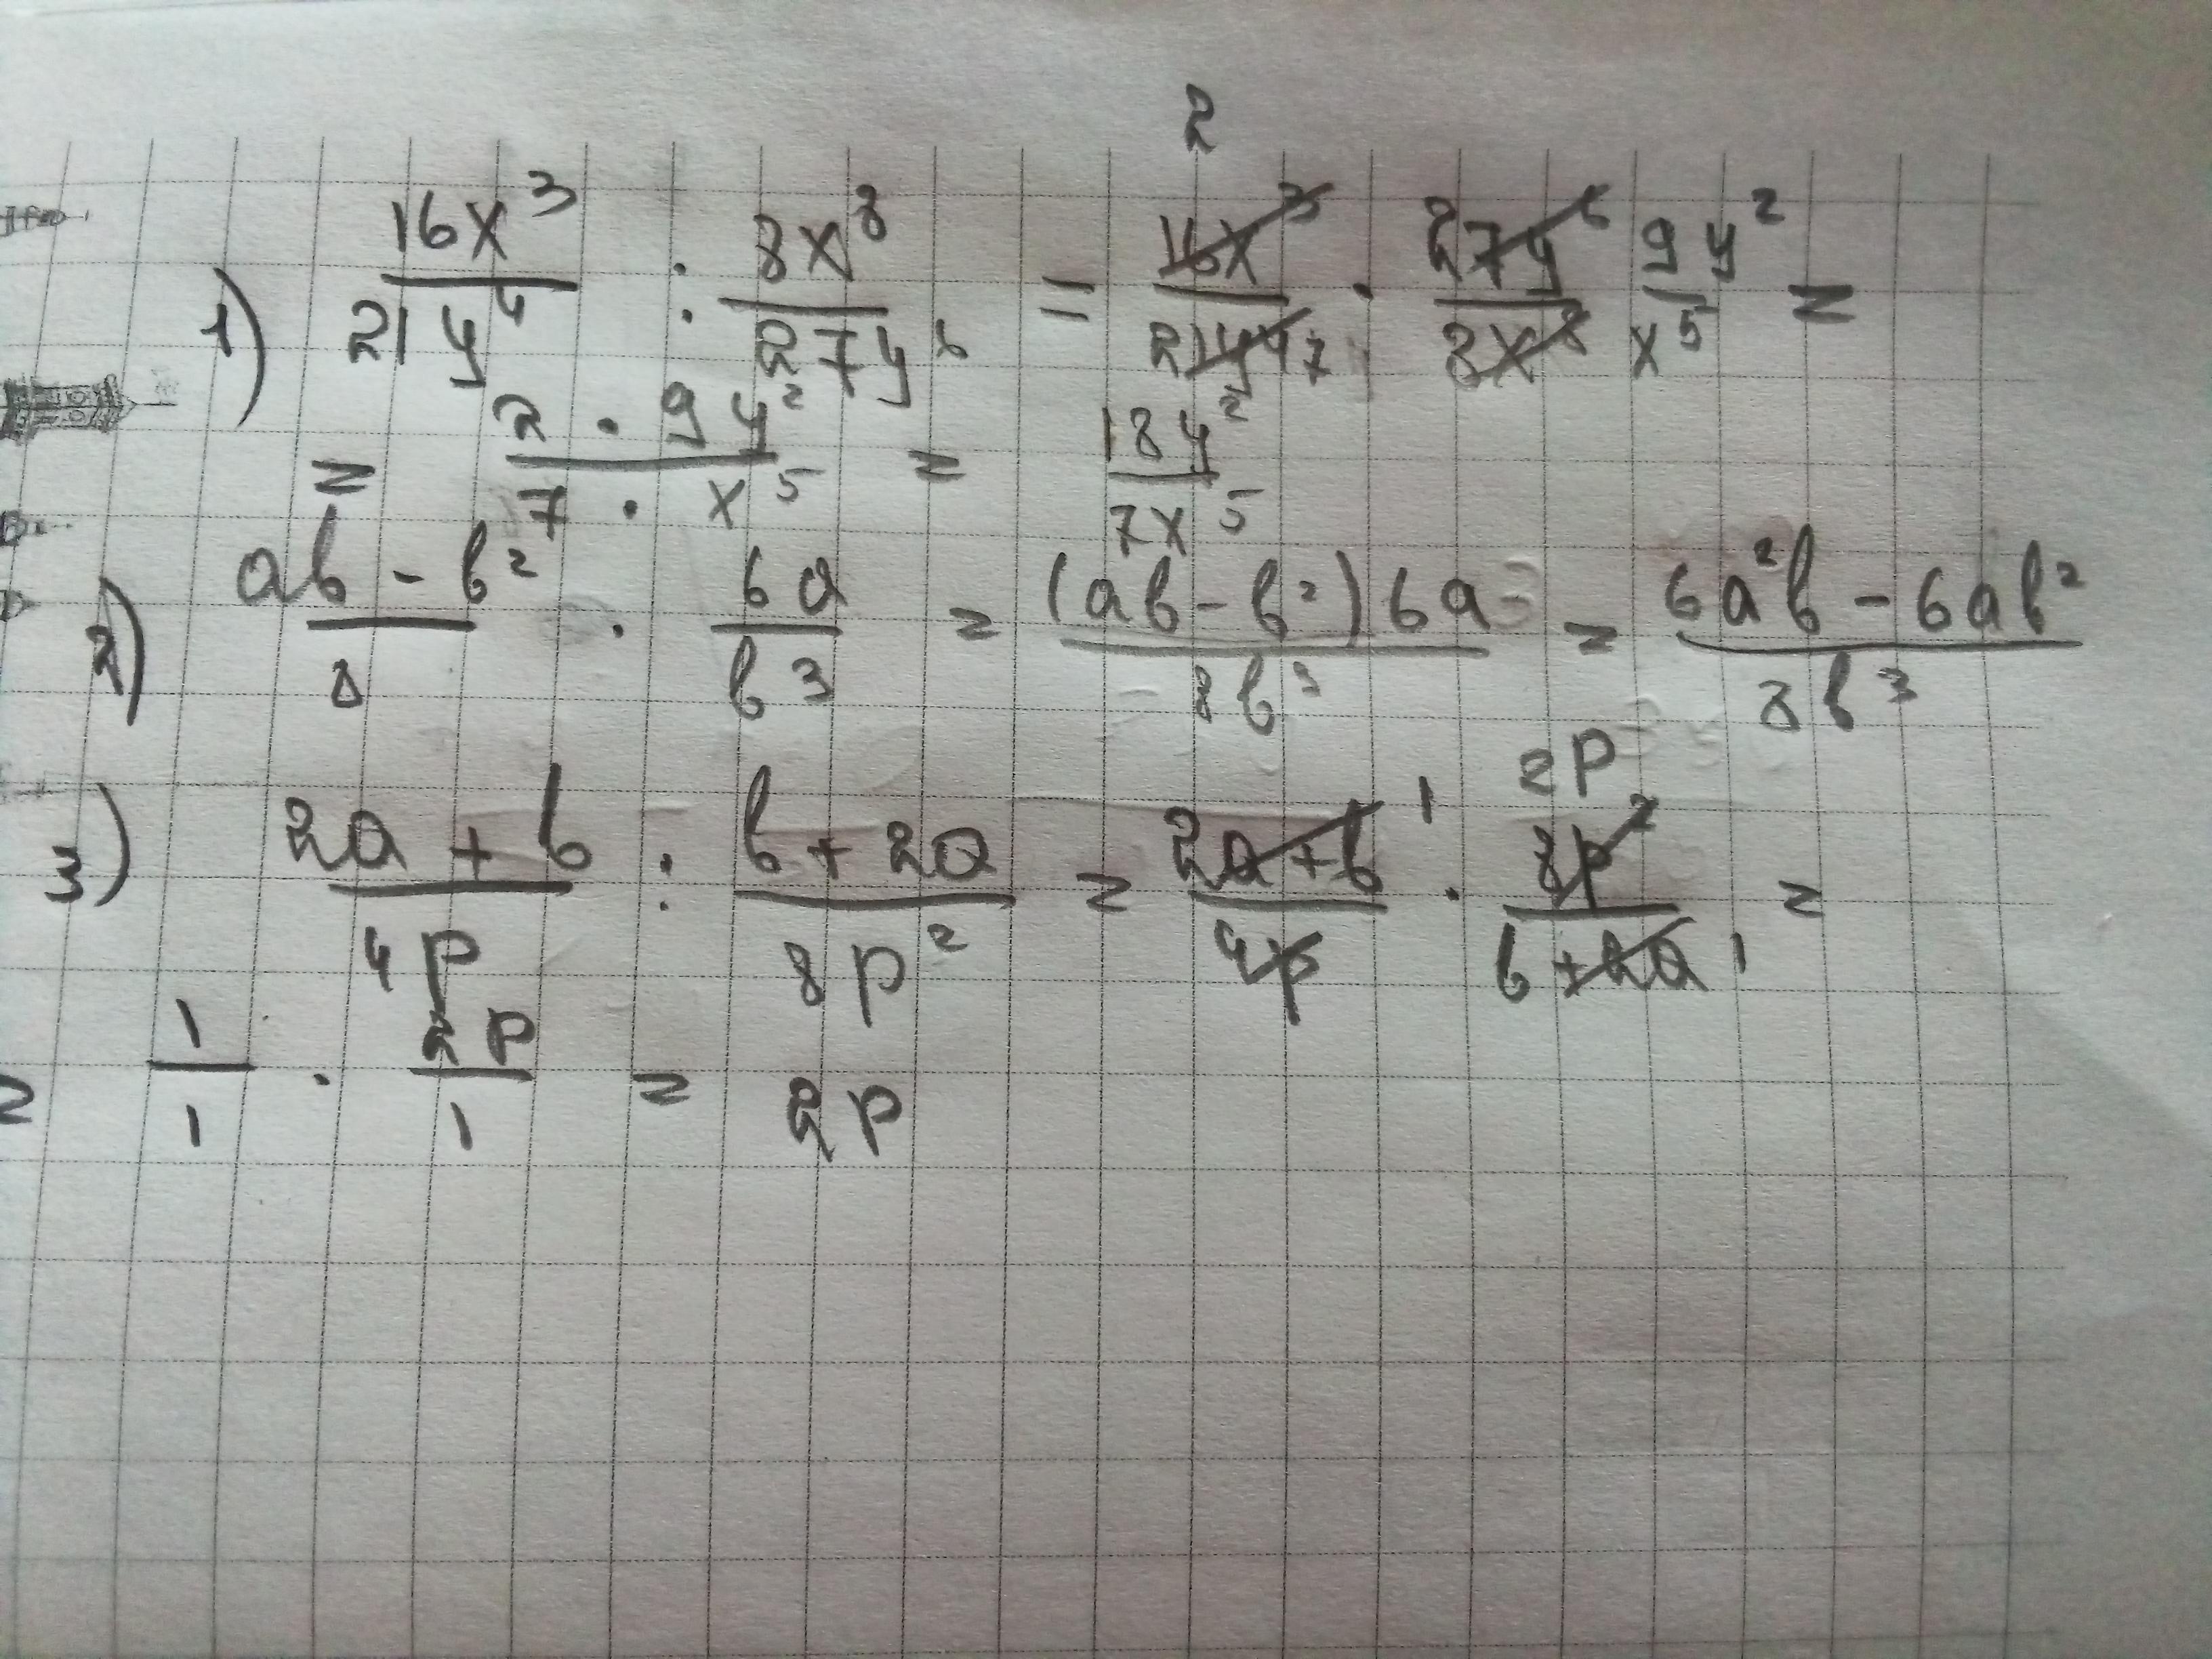 1) 16x³/21y⁴ : 8x⁸/27y⁶ = 2 16x³/21y⁴ 7 · 27y⁶/8x⁸ 9y²/x⁵ =
= 2 · 9y²/7 · x⁵ = 18y²/7x⁵
2) ab - b²/8 · 6a/b³ = (ab - b²)6a/8b³ = 6a²b - 6ab²/8b³
3) 2a + b/4p : b + 2a/8p² = 2a + b 1/4p · 2p 8p²/b + 2a 1 =
= 1/1 · 2p/1 = 2p